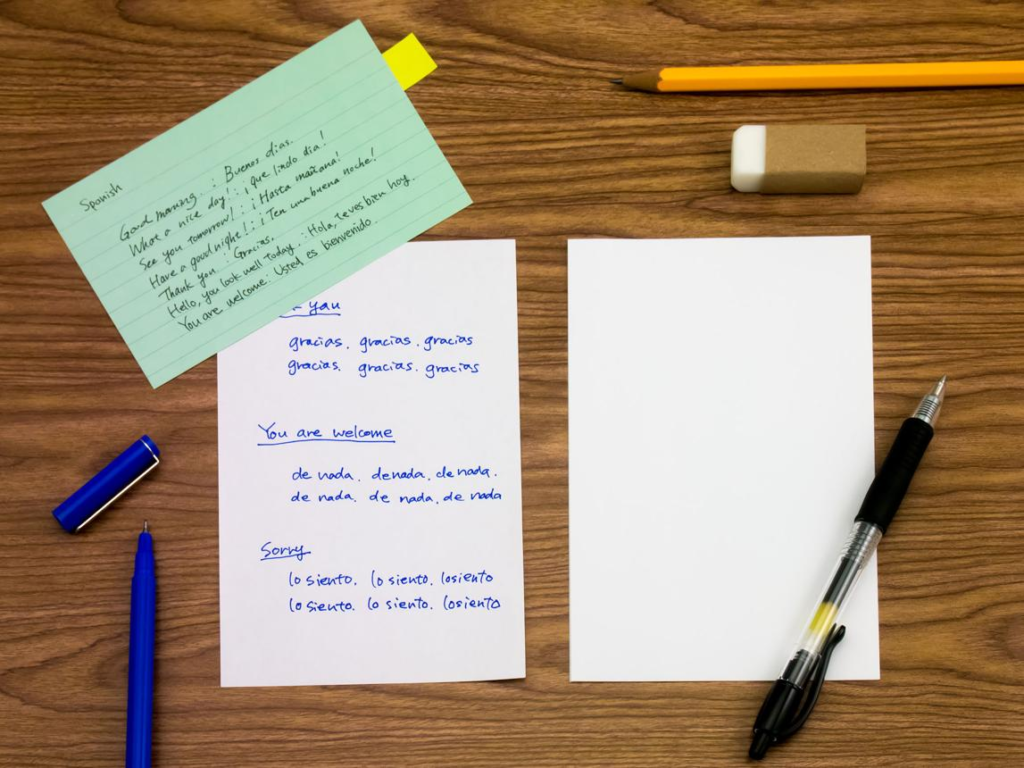 Spanish
Good morning : Buenos dias.
What a nice day! : ¡que lindo dia!
See you tomorrow! : ¡Hasta mañana!
Have a good night! : ¡Ten una buena noche!
Thank you : Gracias.
Hello, you look well today : Hola, te ves bien hoy.
You are welcome : Usted es bienvenido
you
gracias. gracias. gracias
gracias. gracias. gracias
You are welcome
de nada. de nada. de nada.
de nada. de nada. de nada
Sorry
lo siento. lo siento. lo siento
lo siento. lo siento. lo siento